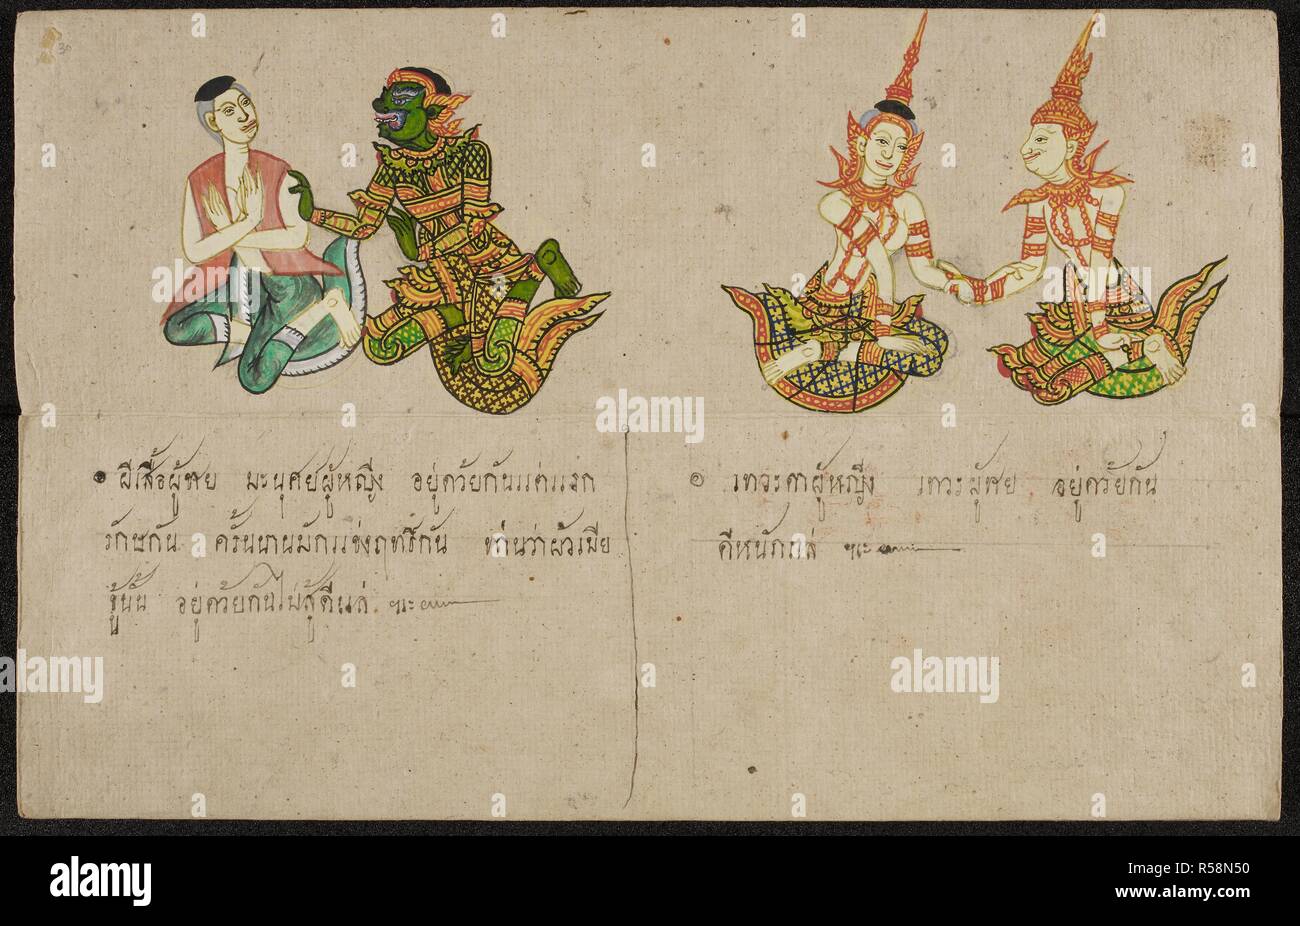 30
๏ ผีเสื้อผู้ชย มะนุศย์ผู้หญีง อยู่ดว้ยกันแต่แรก
รักษกัน ครั้นนานมักแขงฤทธิ์กัน ท่านว่าผัวเมีย
ชู้นั้น อยู่ดว้ยกันไม่สู้ดีแล่ ฯะ
๏ เทวะดาผู้หญีง เทวะผู้ชย อยู่ดว้ยกัน
ดีหนักแล่ ฯะ
alamy
Image ID: R58N50
www.alamy.com